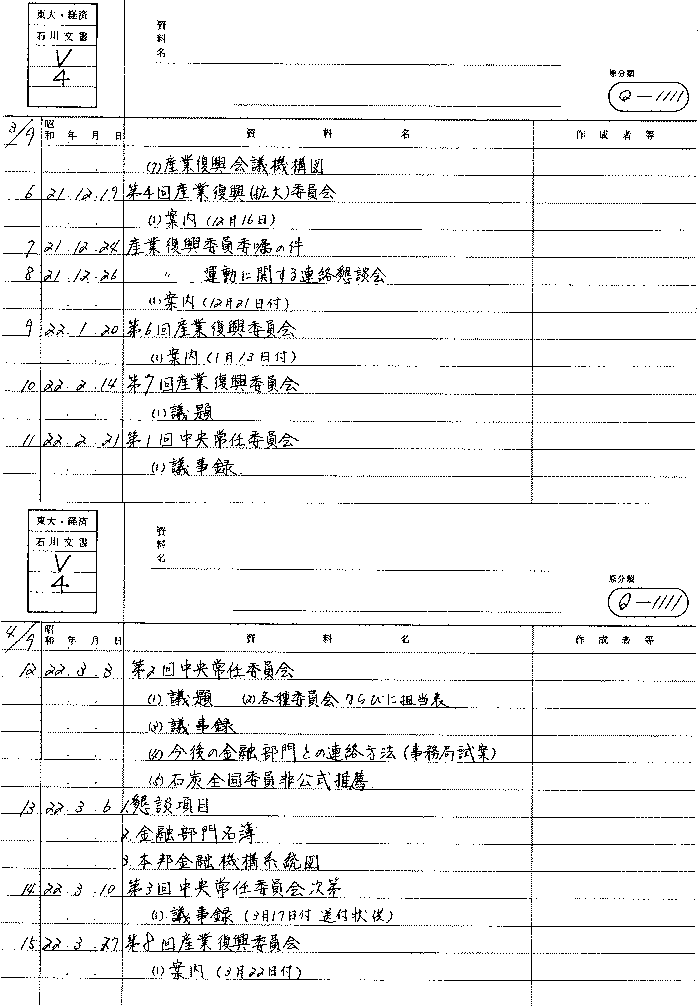 東大・経済
石川文書
V
4
資料名
原分類
Q-1111
3/9
昭和 年 月 日 資料名 作成者等
(7) 産業復興会議機構図
6 21.12.19 第4回産業復興(拡大)委員会
(1) 案内 (12月16日)
7 21.12.24 産業復興委員委嘱の件
8 21.12.26 〃 運動に関する連絡懇談会
(1) 案内 (12月21日付)
9 22.1.20 第6回産業復興委員会
(1) 案内 (1月13日付)
10 22.2.14 第7回産業復興委員会
(1) 議題
11 22.2.21 第1回中央常任委員会
(1) 議事録
東大・経済
石川文書
V
4
資料名
原分類
Q-1111
4/9
昭和 年 月 日 資料名 作成者等
12 22.3.3 第2回中央常任委員会
(1) 議題 (2) 各種委員会ならびに担当表
(3) 議事録
(4) 今後の金融部門との連絡方法 (事務局試案)
(5) 石炭全国委員非公式推薦
13 22.3.6 1.懇談項目
2.金融部門名簿
3.本邦金融機構系統図
14 22.3.10 第3回中央常任委員会次第
(1) 議事録 (3月17日付 送付状共)
15 22.3.27 第8回産業復興委員会
(1) 案内 (3月22日付)